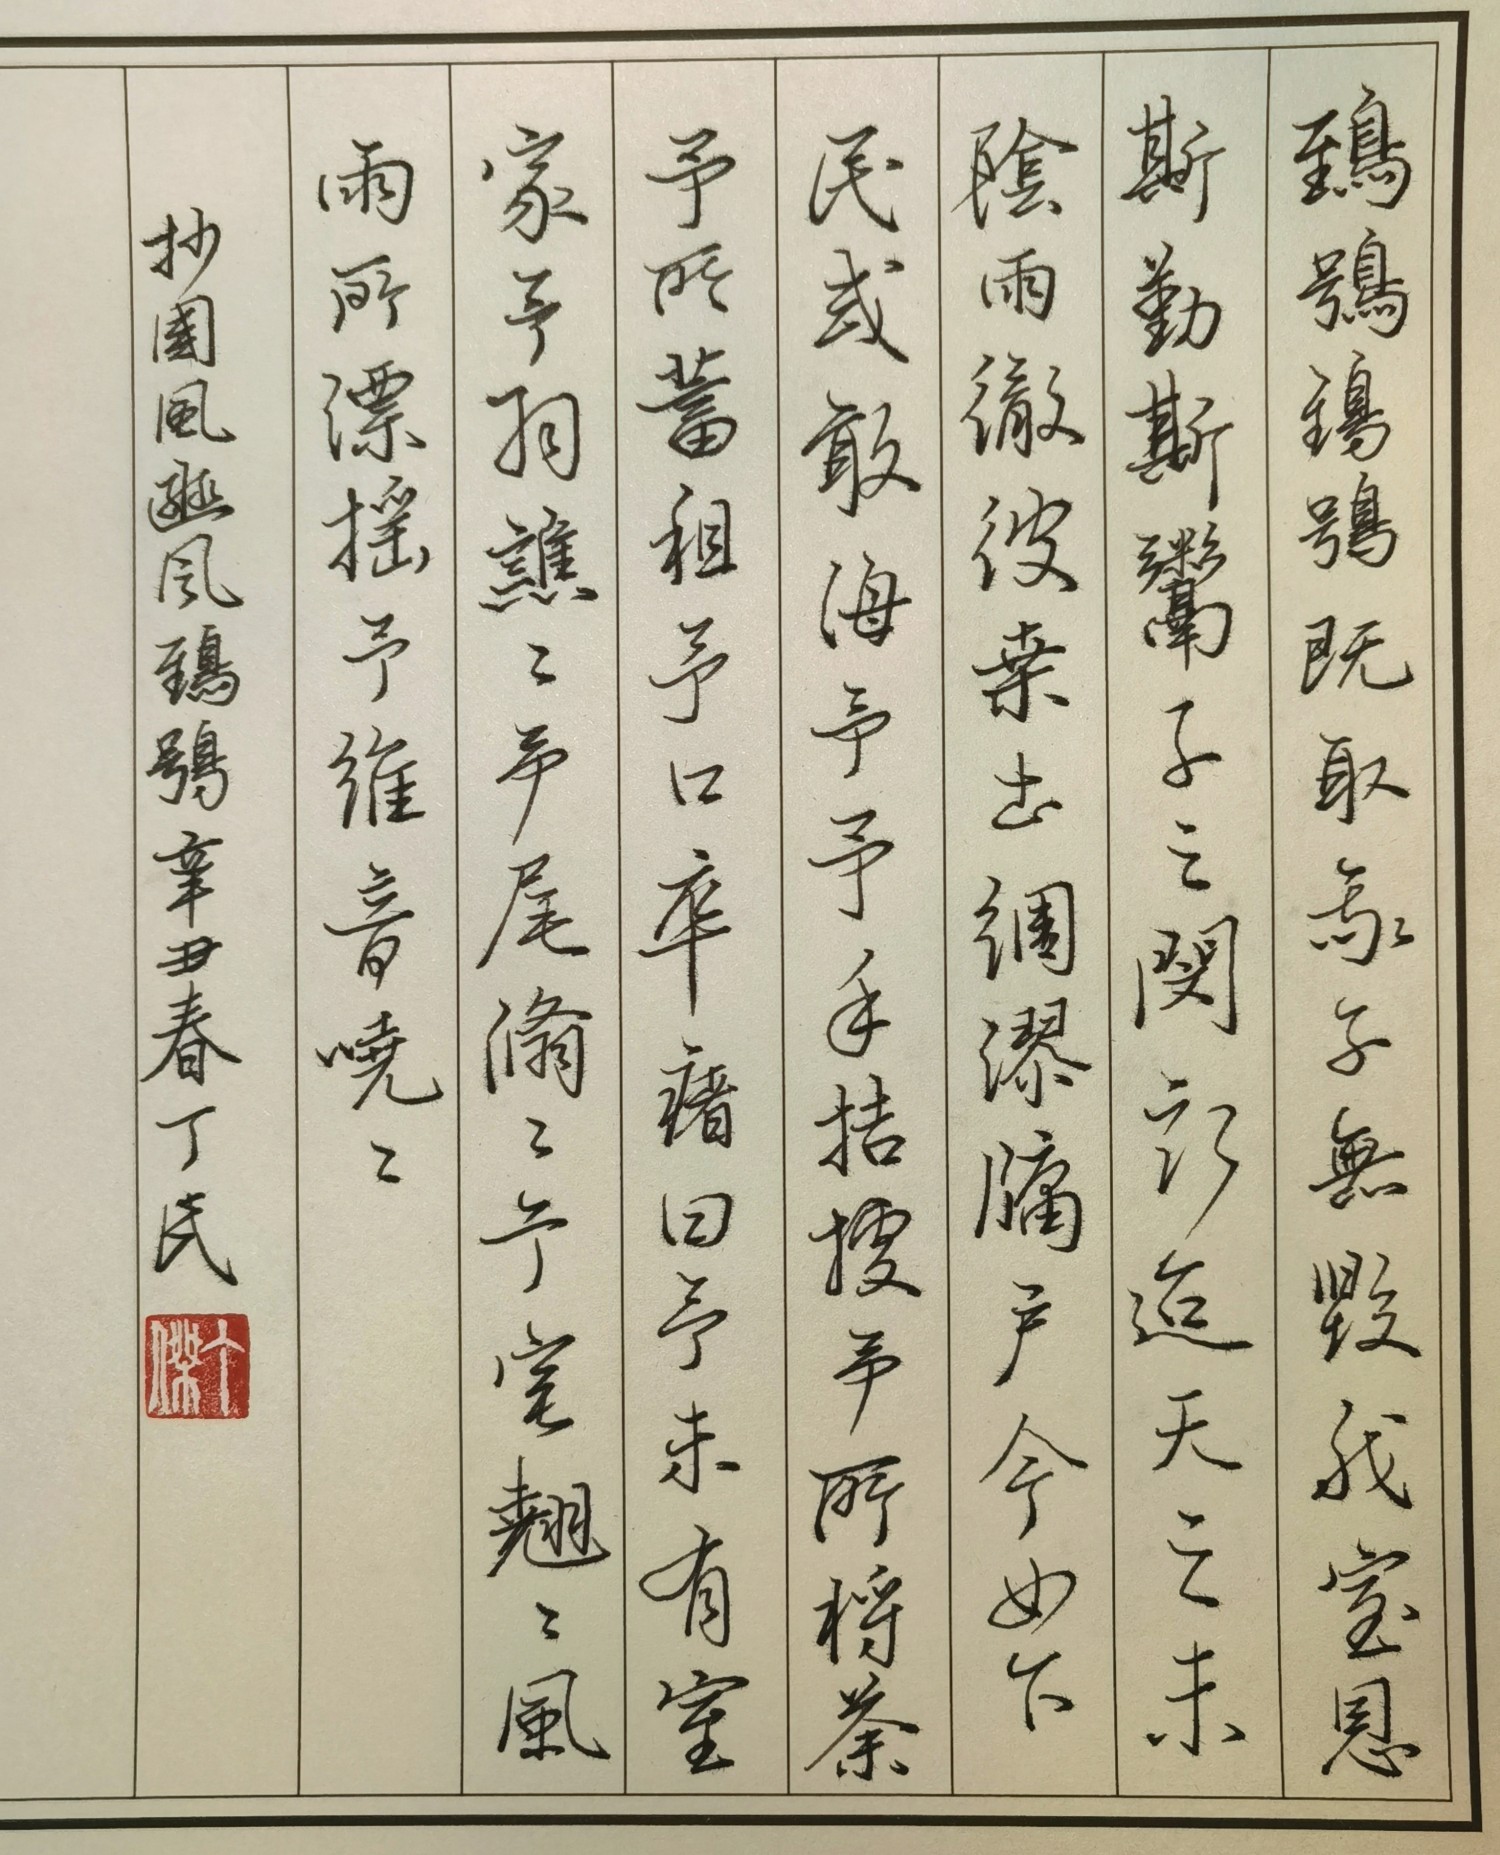 鵄鴞鵄鴞既取我子無毀我室恩
斯勤斯鬻子之閔斯迨天之未
陰雨徹彼桑土綢繆牖戶今女下
民或敢海予予手拮據予所捋荼
予所蓄租予口卒瘏曰予未有室
家予羽譙〻予尾翛〻予室翹〻風
雨所漂搖予維音嘵〻
抄國風豳風鵄鴞辛丑春丁民